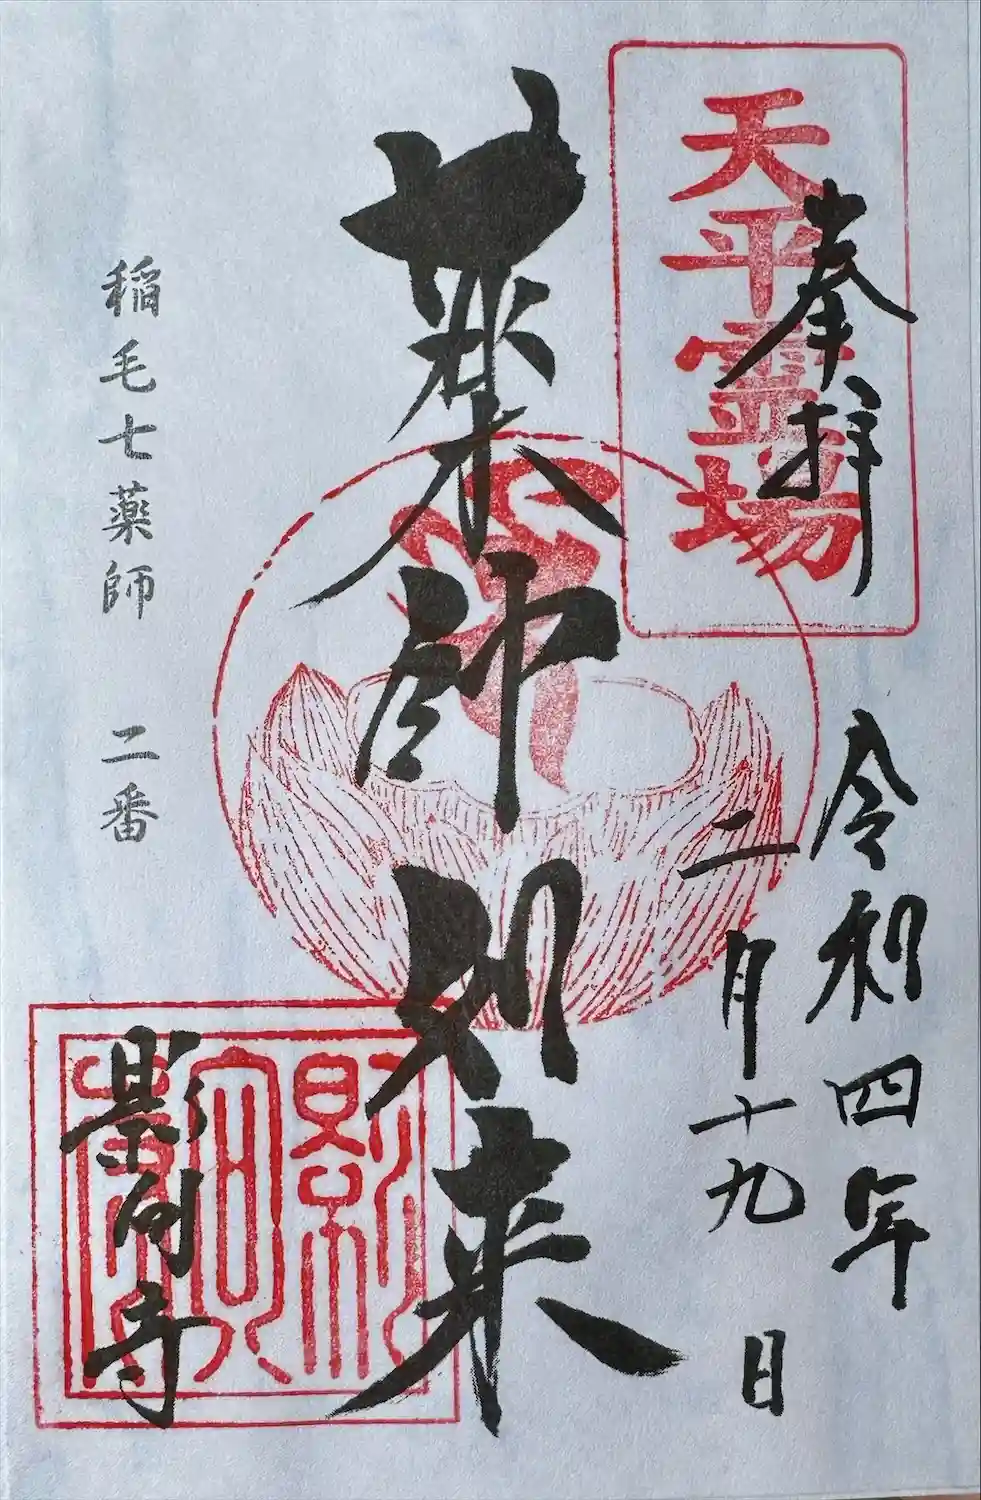 奉拝
天平霊場
令和四年
二月十九日
薬師如来
影向寺
稲毛七薬師 二番